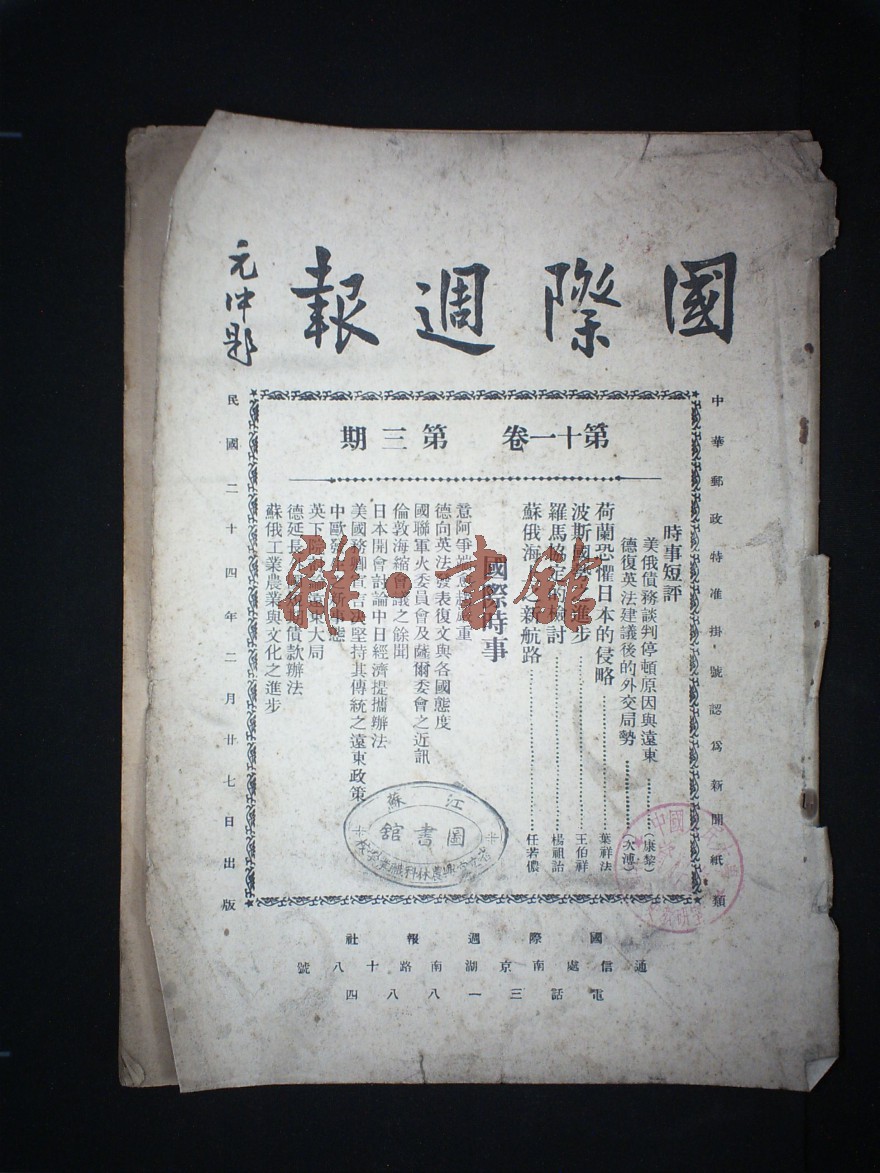 國際週報
元沖題
中華郵政特准掛號認爲新聞紙類
第十一卷 第三期
時事短評
美俄債務談判停頓原因與遠東（康黎）
德復英法建議後的外交局勢（大溥）
荷蘭恐懼日本的侵略 葉祥法
波斯國 之進步 王伯祥
羅馬協定 檢討 楊祖詒
蘇俄海 新航路 任若儂
國際時事
意阿爭端 嚴重
德向英法發表復文與各國態度
國聯軍火委員會及薩爾委會之近訊
倫敦海縮會議之餘聞
日本開會討論中日經濟提攜辦法
美國務卿 堅持其傳統之遠東政策
中歐 新事態
英下院 遠東大局
德延長 債款辦法
蘇俄工業農業與文化之進步
民國二十四年二月廿七日出版
國際週報社
通信處南京湖南路十八號
電話三一八八四
江蘇
圖書館
雅·書館